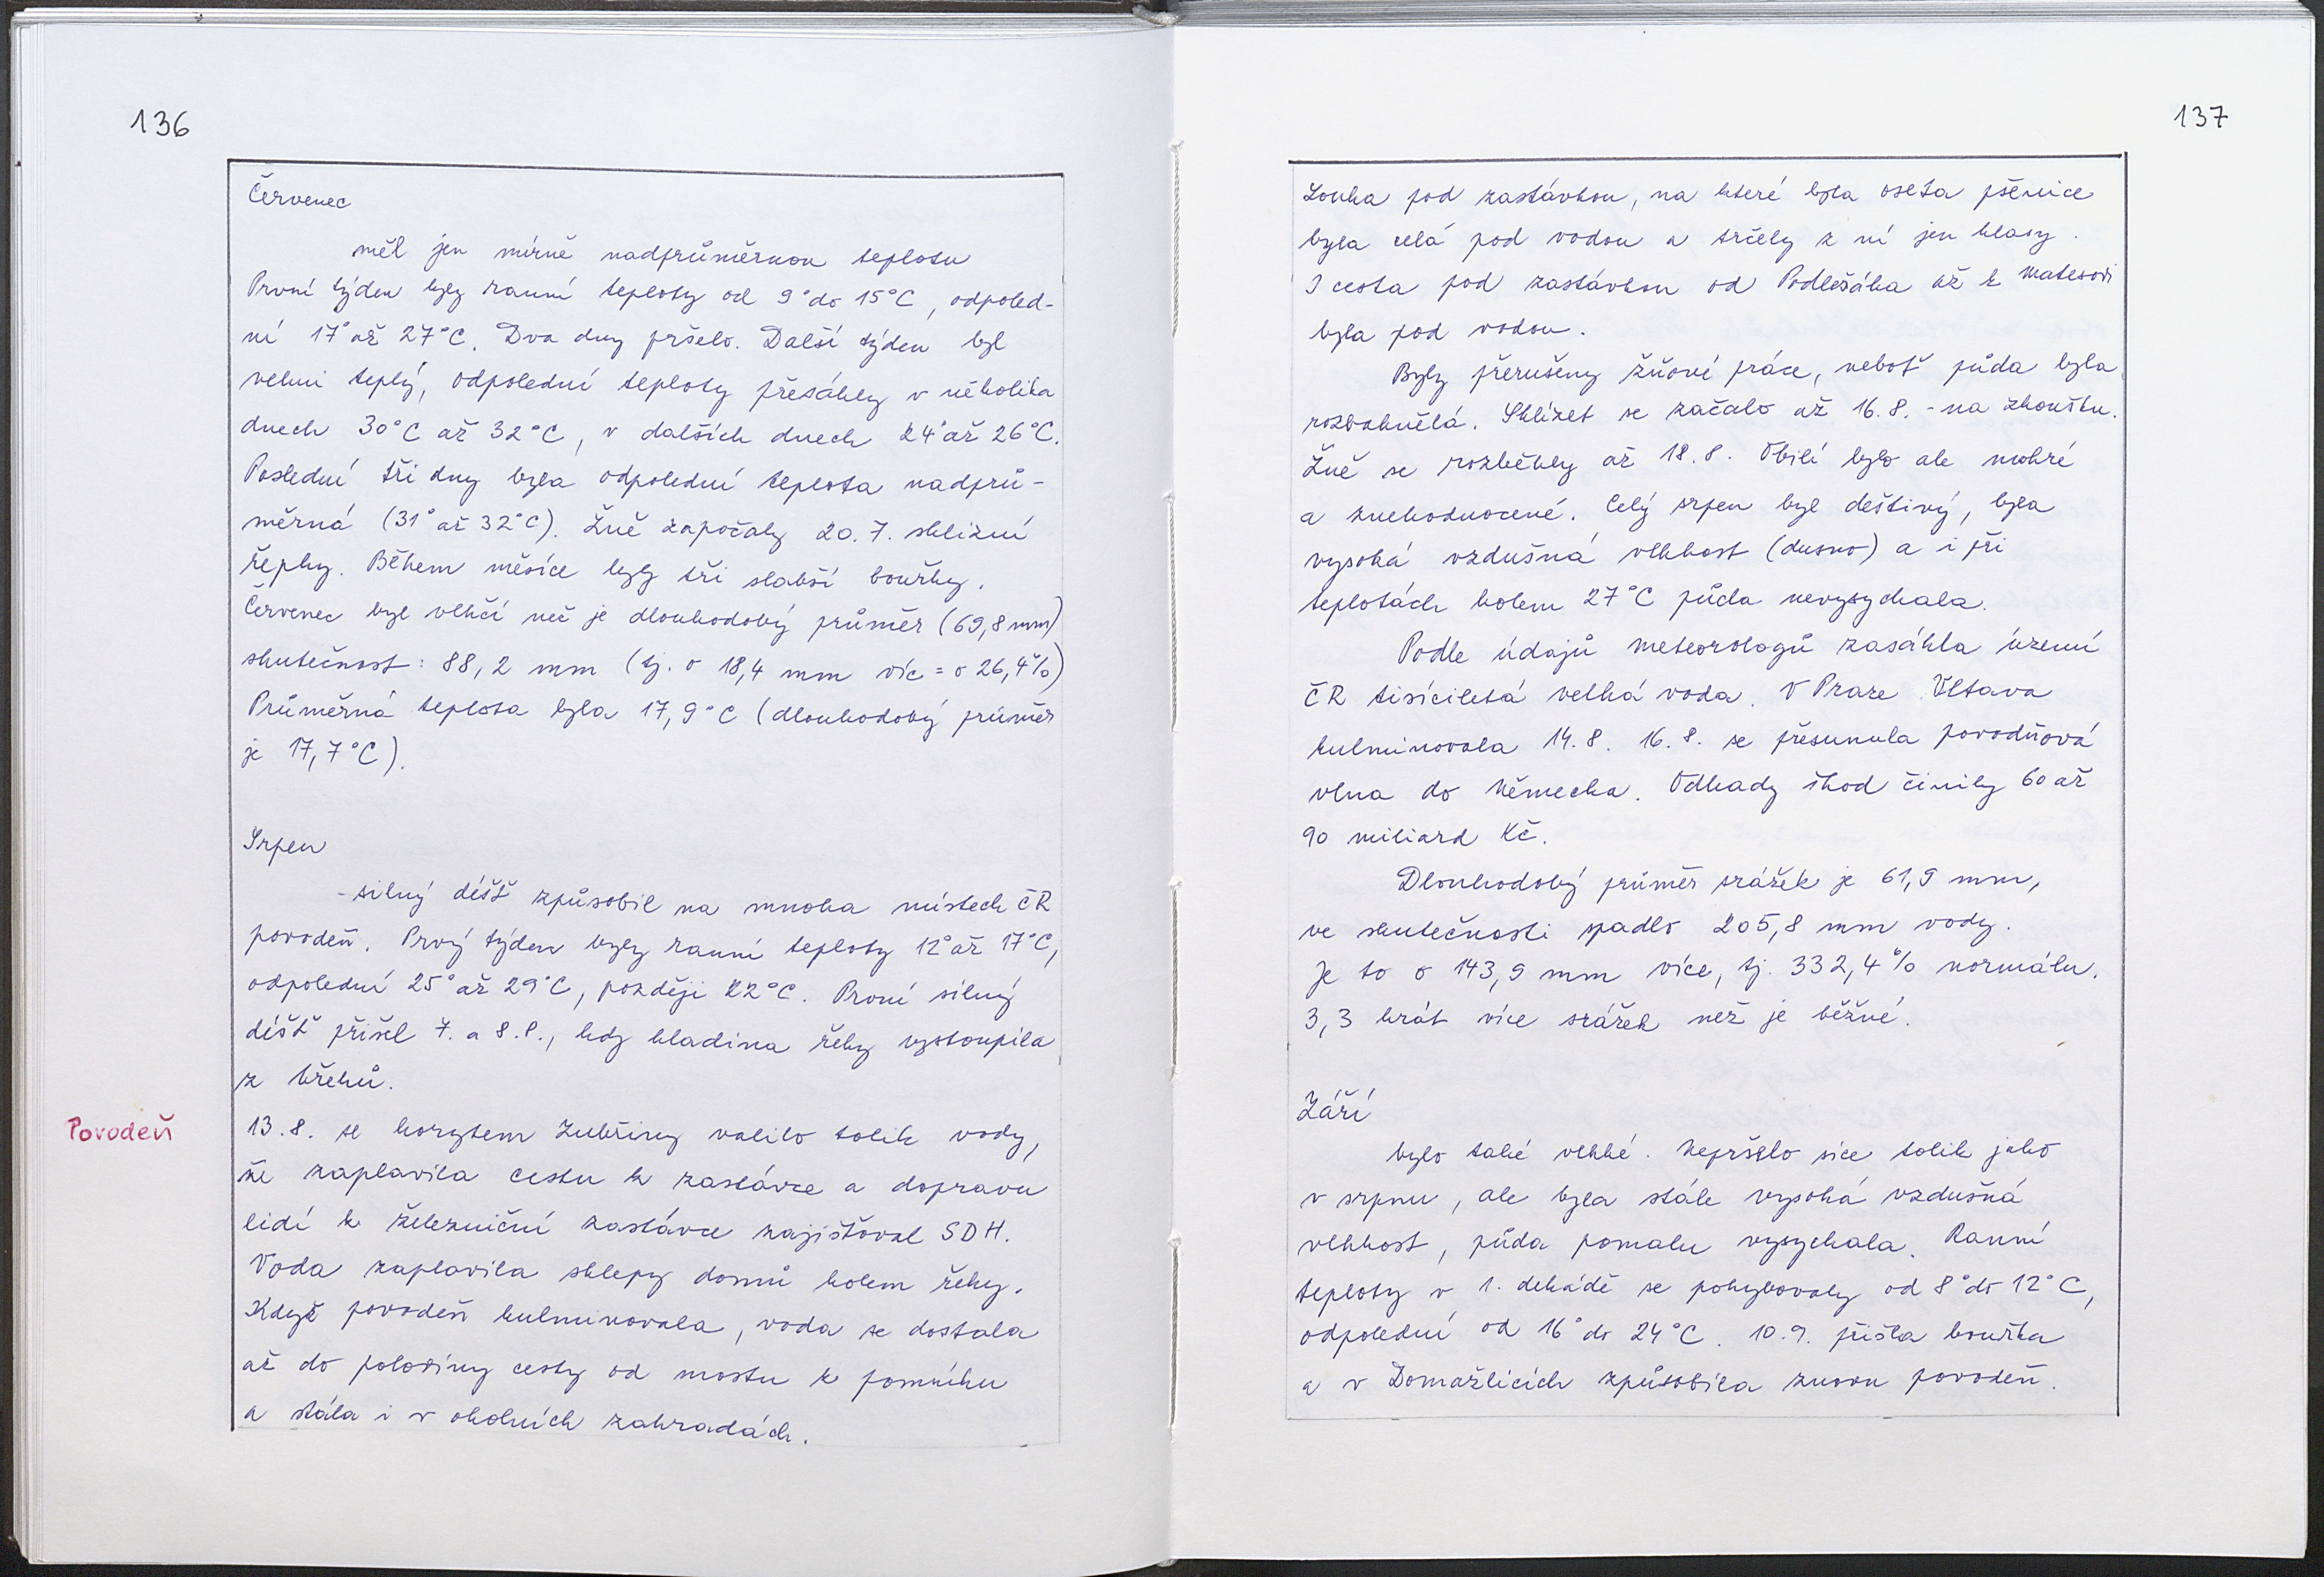 136
Červenec
měl jen mírně nadprůměrnou teplotu
První týden byly ranní teploty od 9° do 15°C, odpoled-
ní 17° až 27°C. Dva dny pršelo. Další týden byl
velmi teplý, odpolední teploty přesáhly v několika
dnech 30°C až 32°C, v dalších dnech 24° až 26°C.
Poslední tři dny byla odpolední teplota nadprů-
měrná (31° až 32°C). Žně započaly 20.7. sklizní
řepky. Během měsíce byly tři slabší bouřky.
Červenec byl vlhčí než je dlouhodobý průměr (69,8 mm)
skutečnost: 88,2 mm (tj. o 18,4 mm víc = o 26,4%)
Průměrná teplota byla 17,9°C (dlouhodobý průměr
je 17,7°C).
Srpen
- silný déšť způsobil na mnoha místech ČR
povodeň. Prvý týden byly ranní teploty 12° až 17°C,
odpolední 25° až 29°C, později 22°C. První silný
déšť přišel 7. a 8.8., kdy hladina řeky vystoupila
z břehů.
Povodeň
13.8. se korytem Zubřiny valilo tolik vody,
že zaplavila cestu k zastávce a dopravu
lidí k železniční zastávce zajišťoval SDH.
Voda zaplavila sklepy domů kolem řeky.
Když povodeň kulminovala, voda se dostala
až do poloviny cesty od mostu k pomníku
a stála i v okolních zahradách.
137
Louka pod zastávkou, na které byla oseta pšenice
byla celá pod vodou a trčely z ní jen klasy.
I cesta pod zastávkou od Podlešáka až k Matesovi
byla pod vodou.
Byly přerušeny žňové práce, neboť půda byla
rozbahnělá. Sklízet se začalo až 16.8. - na zkoušku.
Žně se rozběhly až 18.8. Obilí bylo ale mokré
a znehodnocené. Celý srpen byl deštivý, byla
vysoká vzdušná vlhkost (dusno) a i při
teplotách kolem 27°C půda nevysychala.
Podle údajů meteorologů zasáhla území
ČR tisíciletá velká voda. V Praze Vltava
kulminovala 14.8. 16.8. se přesunula povodňová
vlna do Německa. Odhady škod činily 60 až
90 miliard Kč.
Dlouhodobý průměr srážek je 61,9 mm,
ve skutečnosti spadlo 205,8 mm vody.
Je to o 143,9 mm více, tj. 332,4% normálu.
3,3 krát více srážek než je běžné.
Září
bylo také vlhké. Nepršelo sice tolik jako
v srpnu, ale byla stále vysoká vzdušná
vlhkost, půda pomalu vysychala. Ranní
teploty v 1. dekádě se pohybovaly od 8° do 12°C,
odpolední od 16° do 24°C. 10.9. přišla bouřka
a v Domažlicích způsobila znovu povodeň.